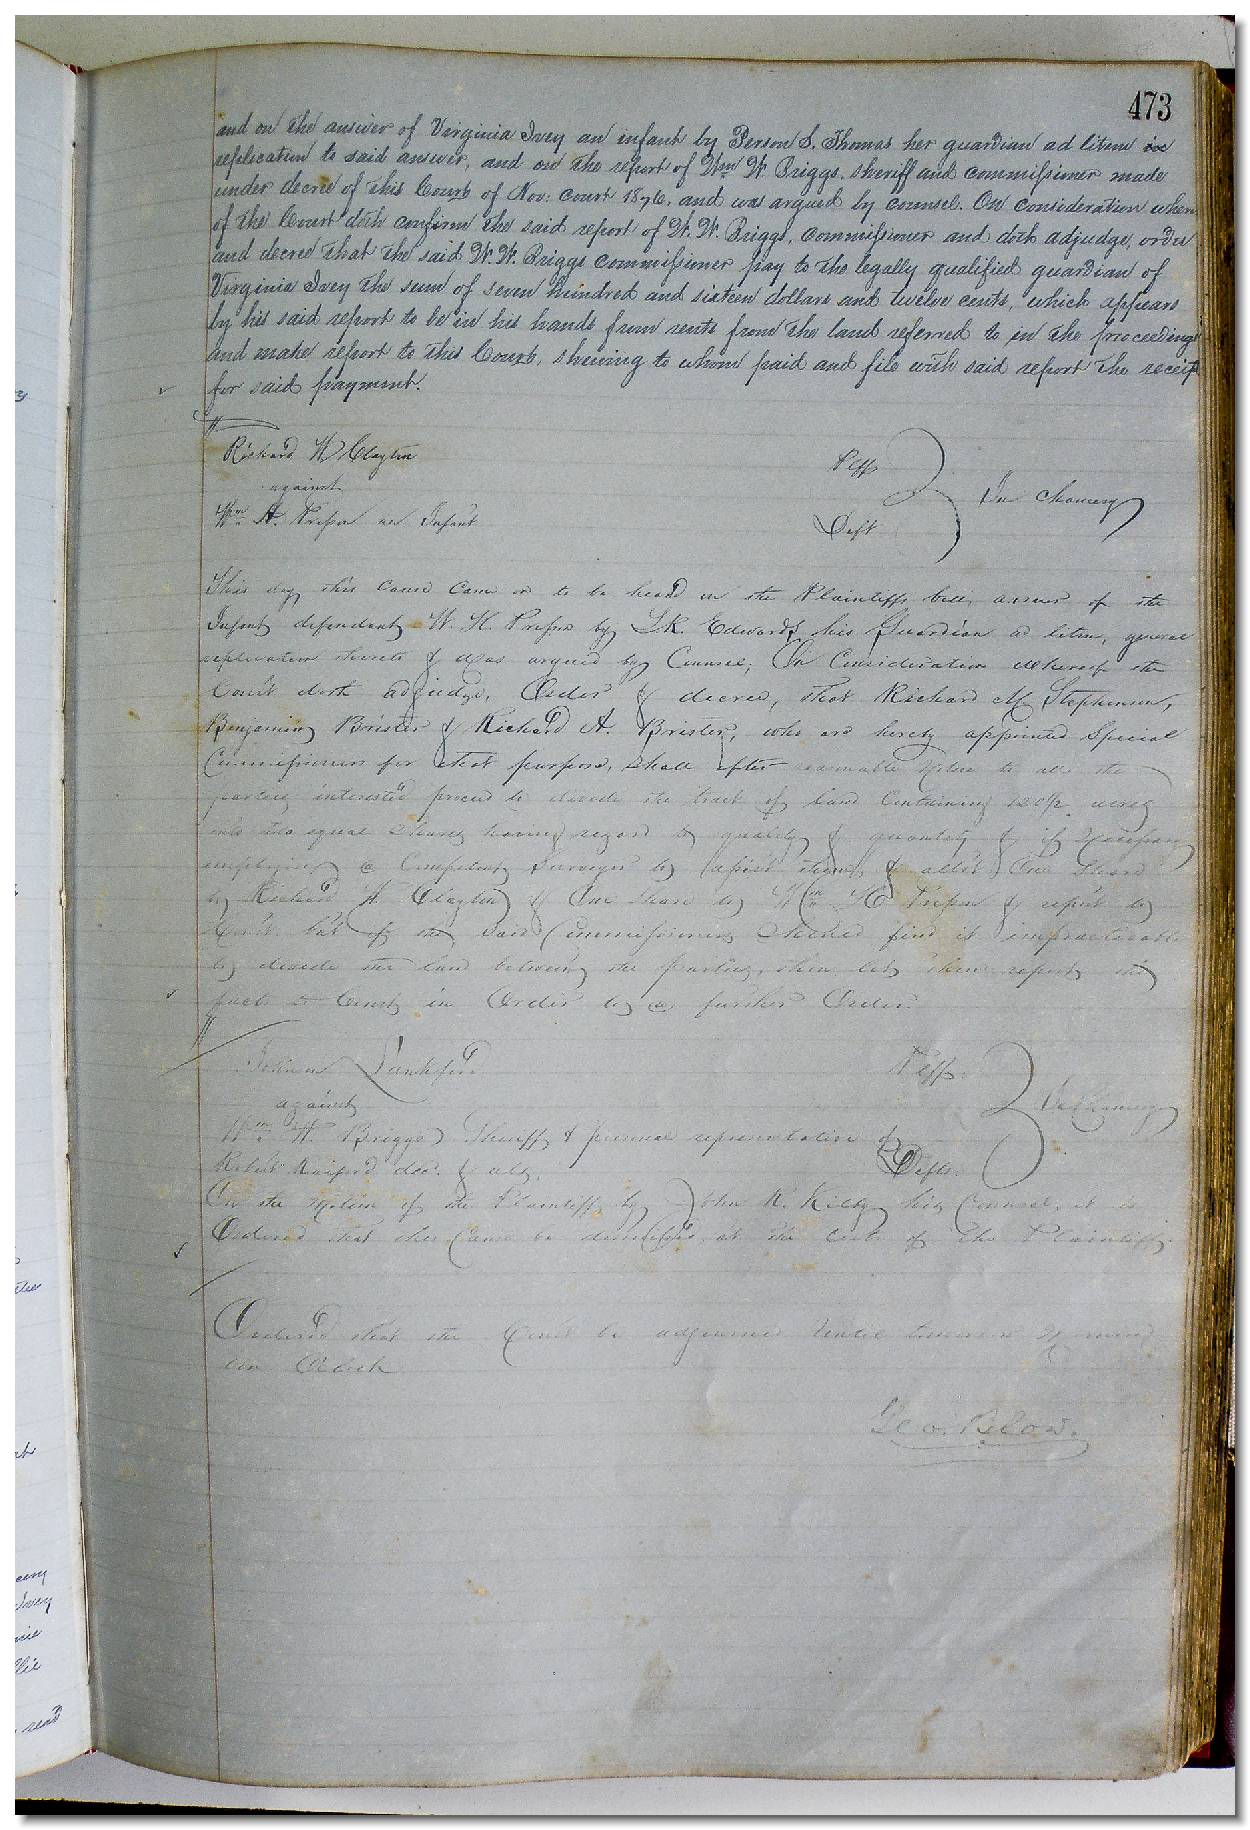 473
and on the answer of Virginia Ivey an infant by Person S. Thomas her guardian ad litem
replication to said answer, and on the report of Wm W. Briggs, sheriff and commissioner made
under decree of this Court of Nov: Court 1876, and was argued by counsel. On consideration when
of the Court doth confirm the said report of W. W. Briggs, commissioner and doth adjudge, order
and decree that the said W. W. Briggs commissioner pay to the legally qualified guardian of
Virginia Ivey the sum of seven hundred and sixteen dollars and twelve cents, which appears
by his said report to be in his hands from rents from the land referred to in the proceedings
and make report to this Court, shewing to whom paid and file with said report the receipt
for said payment.
Richard H Clayton Plff
against In Chancery
Wm H. an Infant Deft
This day this cause came on to be heard on the Plaintiffs bill, answer of the
Infant defendant W. H. by L. R. Edwards his Guardian ad litem, general
replication thereto & was argued by Counsel, On Consideration whereof the
Court doth adjudge, Order & decree, that Richard M Stephenson,
Benjamin Brister & Richard A. Brister, who are hereby appointed Special
Commissioners for that purpose, shall after reasonable notice to all the
parties interested proceed to divide the tract of land Containing 120½ acres
into two equal shares having regard to quality & quantity & if necessary
employing a Competent Surveyor to assist them, & allot One Share
to Richard H. Clayton & One Share to Wm H & report to
Court. but if the said Commissioners should find it impracticable
to divide the land between the parties, then let them report the
facts to Court in Order to a further Order.
Lankford Plff.
against In Chancery
Wm W. Briggs Sheriff & personal representative of
Robert Raiford dec. & als. Defts.
On the motion of the Plaintiff by John R. Kilby his Counsel, it is
Ordered that this Cause be dismissed, at the cost of the Plaintiff.
Ordered that the Court be adjourned until tomorrow morning
ten Oclock
Geo. Blow.